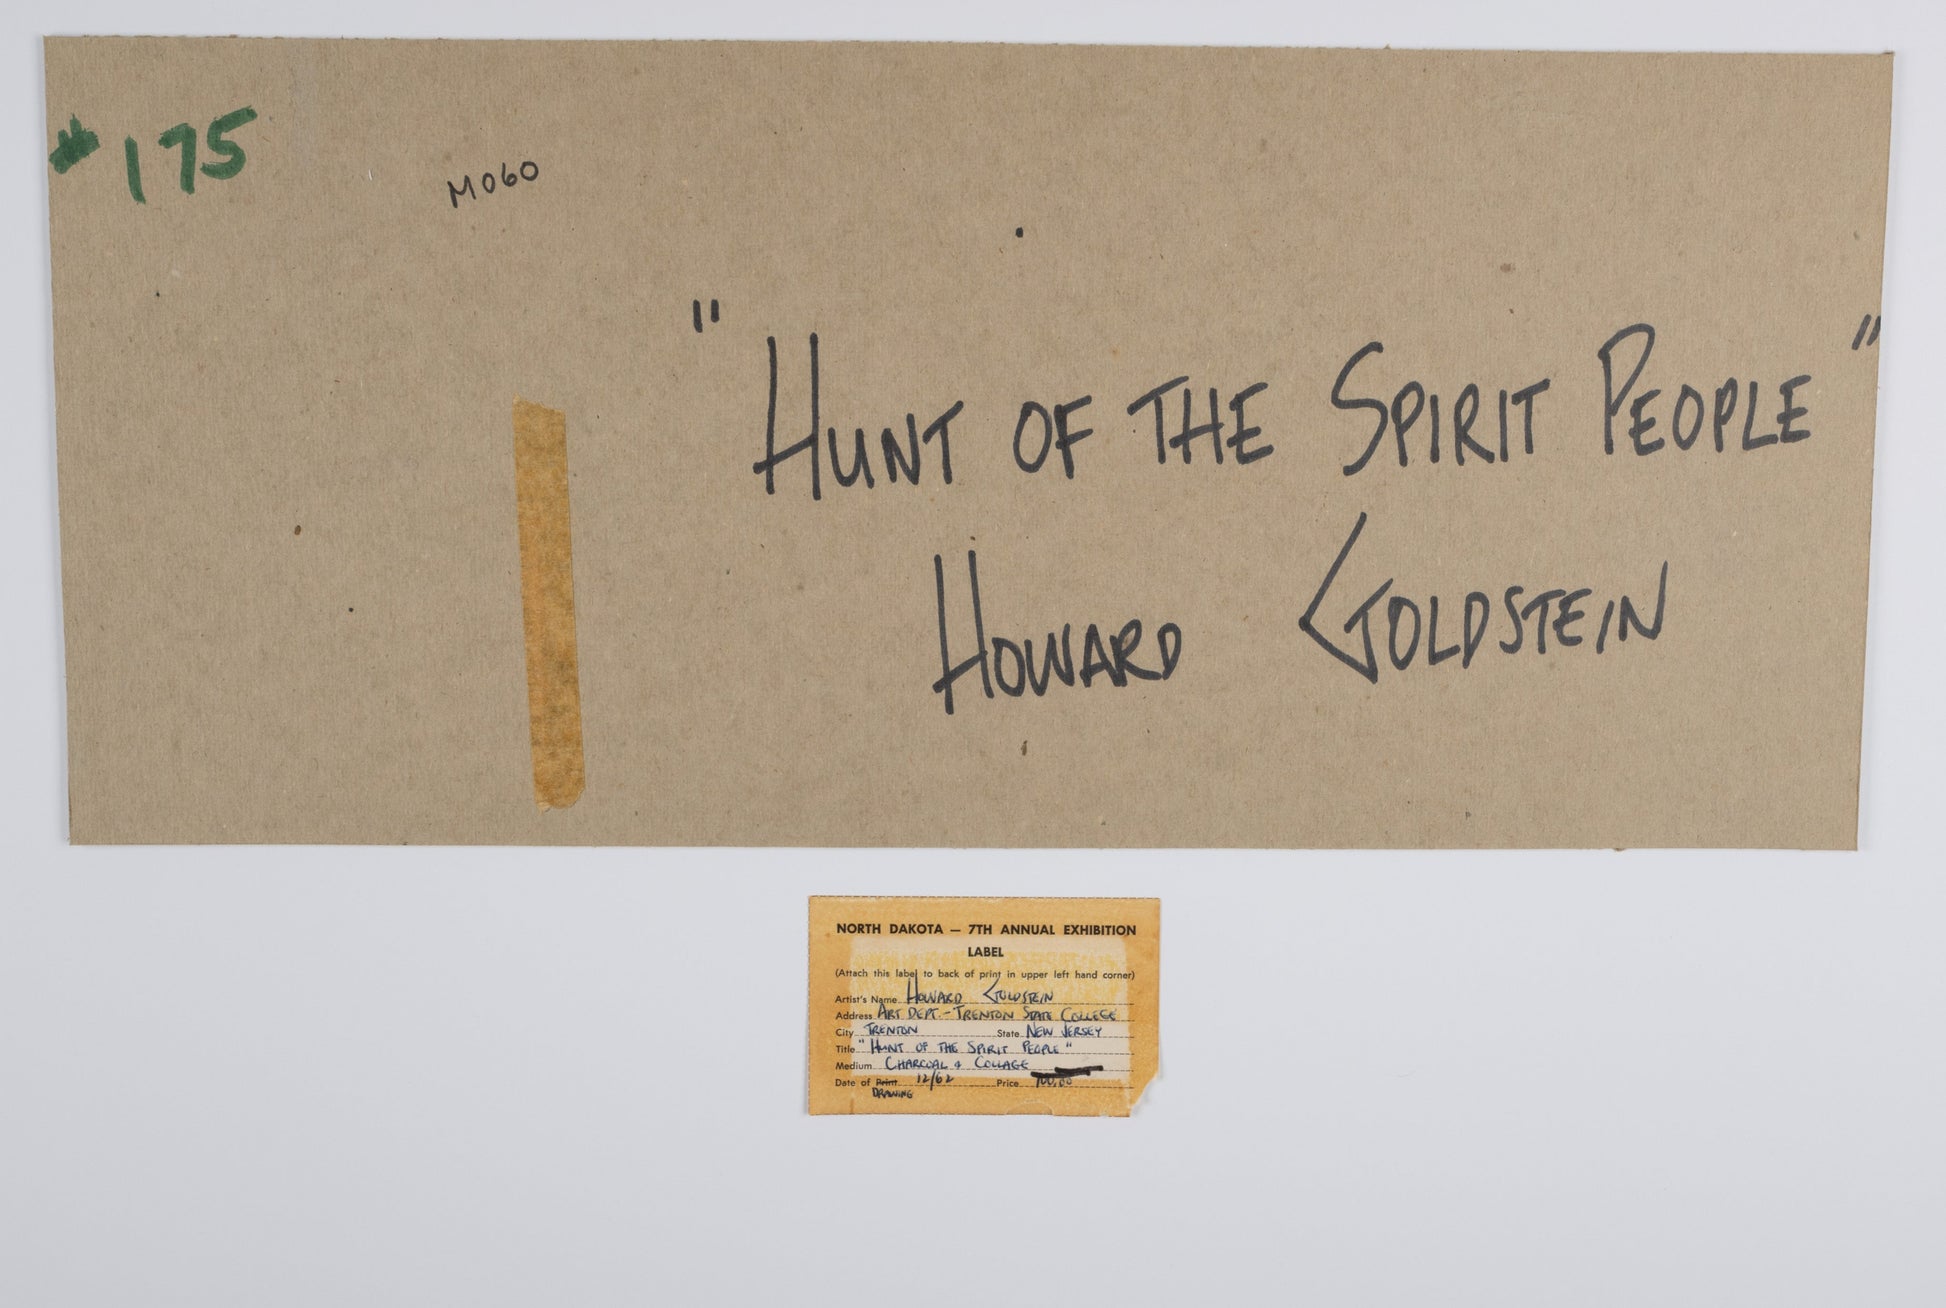 #175
M060
"HUNT OF THE SPIRIT PEOPLE"
HOWARD GOLDSTEIN
NORTH DAKOTA — 7TH ANNUAL EXHIBITION
LABEL
(Attach this label to back of print in upper left hand corner)
Artist's Name HOWARD GOLDSTEIN
Address ART DEPT. - TRENTON STATE COLLEGE
City TRENTON State NEW JERSEY
Title "HUNT OF THE SPIRIT PEOPLE"
Medium CHARCOAL & COLLAGE
Date of Print 12/62 Price 100.00
DRAWING